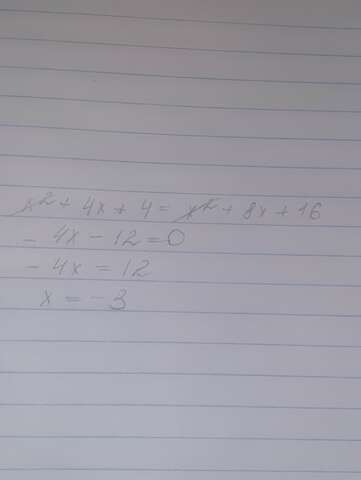 x² + 4x + 4 = x² + 8x + 16
- 4x - 12 = 0
- 4x = 12
x = - 3